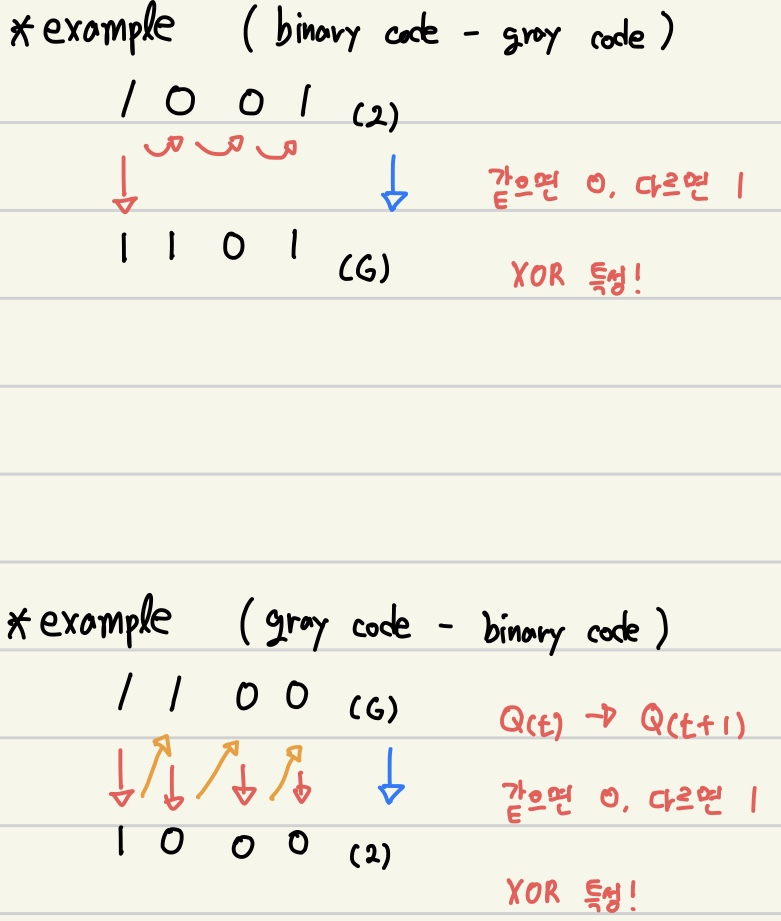 *example (binary code - gray code)
1 0 0 1 (2)
같으면 0, 다르면 1
1 1 0 1 (G)
XOR 특성!
*example (gray code - binary code)
1 1 0 0 (G)
Q(t) → Q(t+1)
같으면 0, 다르면 1
1 0 0 0 (2)
XOR 특성!